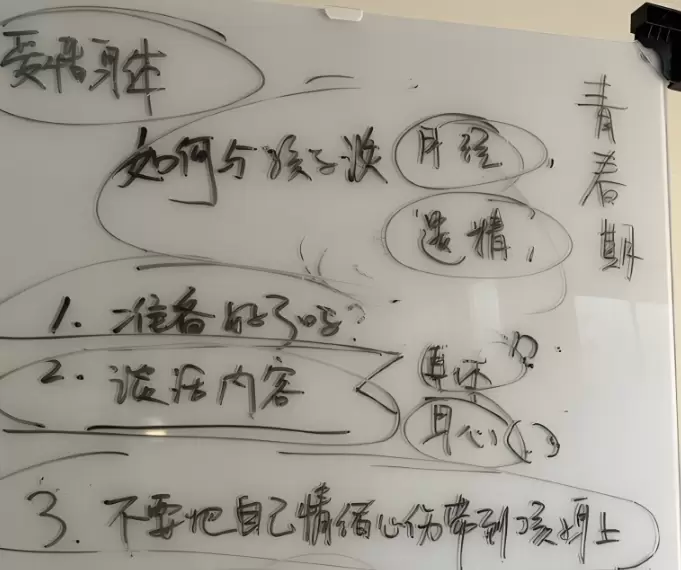 爱惜身体
青春期
如何与孩子谈月经,
遗精,
1. 准备好了吗?
2. 谈话内容
身体?
身心( )
3. 不要把自己情绪心伤带到孩子身上